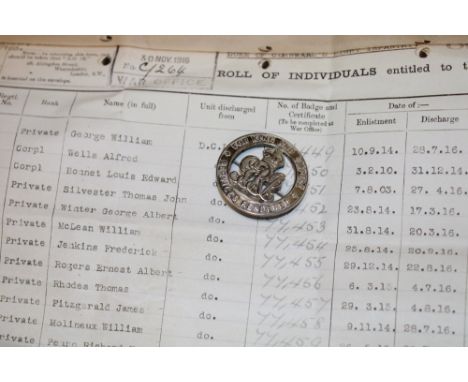 30 NOV 1916
No. C/264
WAR OFFICE
DUKE OF CORNWALL'S LIGHT INFANTRY
ROLL OF INDIVIDUALS entitled to t
Regtl. No. Rank Name (in full) Unit discharged from No. of Badge and Certificate (To be completed at War Office) Date of :—
Enlistment Discharge
Private George William D.C 449 10.9.14. 28.7.16.
Corpl Wells Alfred 50 3.2.10. 31.12.14.
Corpl Bonnet Louis Edward 51 7.8.03. 27. 4.16.
Private Silvester Thomas John 452 23.8.14. 17.3.16.
Private Winter George Albert do. 77,453 31.8.14. 20.3.16.
Private McLean William do. 77,454 25.8.14. 20.9.16.
Private Jenkins Frederick do. 77,455 29.12.14. 22.8.16.
Private Rogers Ernest Albert do. 77,456 6. 3.15. 4.7.16.
Private Rhodes Thomas do. 77,457 29. 3.15. 4.8.16.
Private Fitzgerald James do. 77,458 9.11.14. 28.7.16.
Private Molineux William do. 77,459
Private